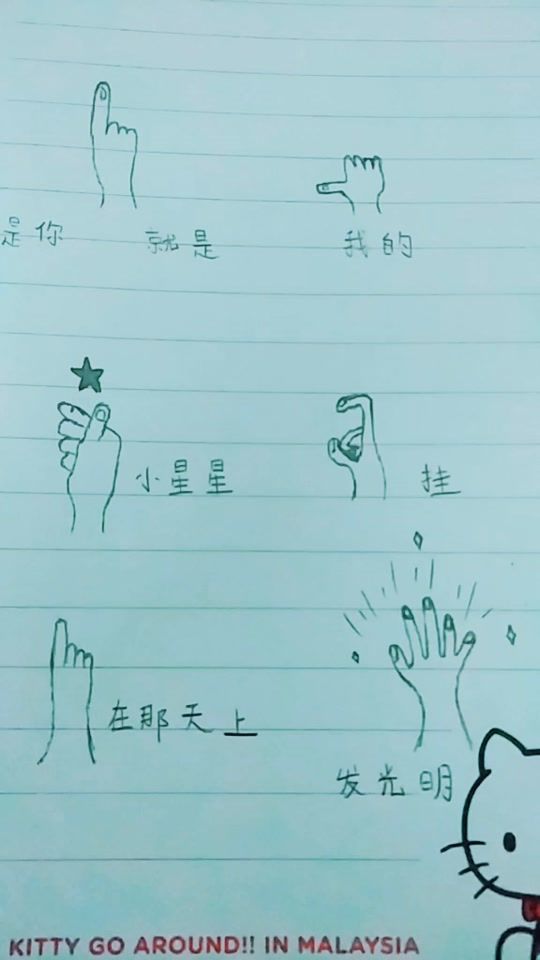 是你 就是 我的
小星星 挂
在那天上
发光明
KITTY GO AROUND!! IN MALAYSIA